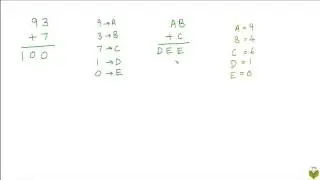 93
+ 7
100
9→A
3→B
7→C
1→D
0→E
AB
+ C
DEE
A = 9
B = 4
C = 6
D = 1
E = 0